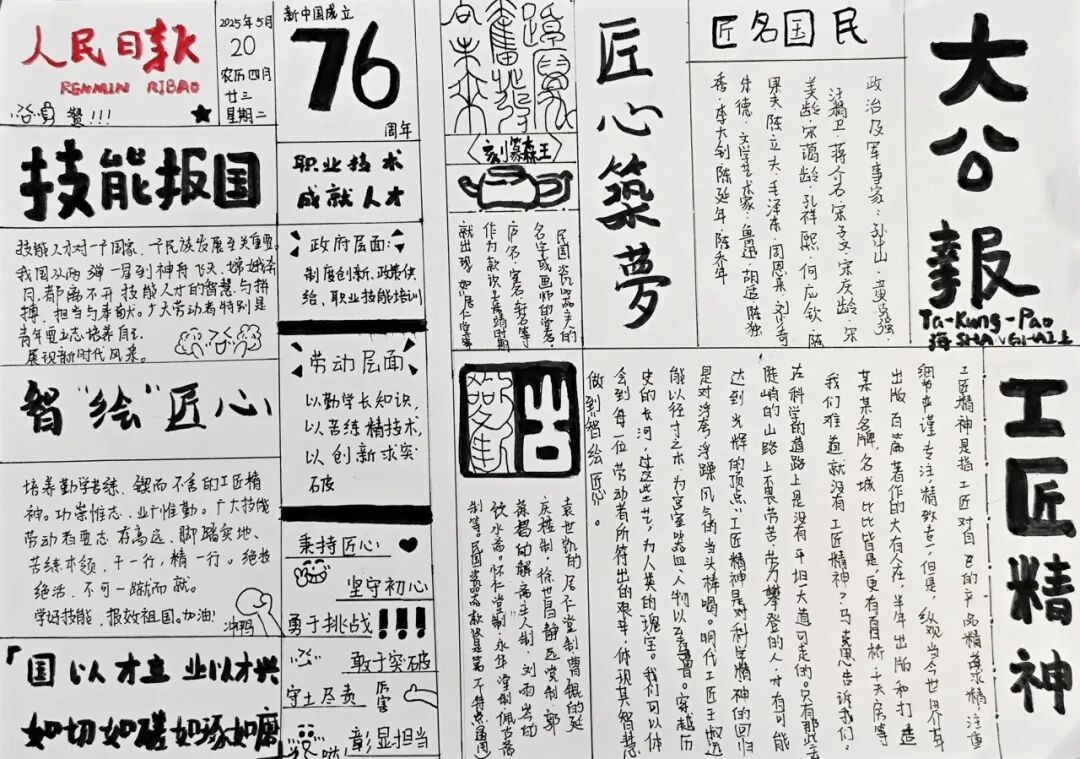 人民日報
RENMIN RIBAO
赞!!!
2025年5月
20
农历四月
廿三
星期二
新中国成立
76
周年
技能报国
职业技术
成就人才
技能人才对一个国家、一个民族发展至关重要。
我国从两弹一星到神舟飞天、嫦娥络
月,都离不开技能人才的智慧与拼
搏、担当与奉献。广大劳动者特别是
青年要立志培养自己,
展现新时代风采。
政府层面:
制度创新、政策供
给、职业技能培训
智“绘”匠心
劳动层面
以勤学长知识,
以苦练精技术,
以创新求突
破
培养勤学苦练、锲而不舍的工匠精
神。功崇惟志、业广惟勤。广大技能
劳动者要志存高远、脚踏实地、
苦练本领、干一行,精一行。绝技
绝活,不可一蹴而就。
学好技能,报效祖国。加油!
冲鸭
秉持匠心
坚守初心
勇于挑战!!!
敢于突破
守土尽责
厉害
彰显担当
哒
「国以才立 业以才兴
如切如磋如琢如磨
大公報
Ta-Kung-Pao
SHANGHAI
匠名国民
政治及军事家:孙中山·黄兴·
汪精卫·蒋介石·宋子文·宋庆龄·宋
美龄·宋蔼龄·孔祥熙·何应钦·陈
果夫·陈立夫·毛泽东·周恩来·刘少奇
朱德·文学艺术家·鲁迅·胡适·陈独
秀·李大钊·陈延年·陈乔年
匠心築夢
〈刻篆森王〉
民国瓷器落款的
名字或画师的堂名、
作为款识
就出现,如居仁堂
工匠精神
工匠精神是指工匠对自己的产品精雕求精,注重
细节,严谨、专注、精致、专一,但是,纵观当今世界,年
出版百篇著作的大有人在,半年出版和打造
某某名牌,名城比比皆是,更有百桥、千天房等
我们难道就没有工匠精神?马克思告诉我们:
在科学的道路上是没有平坦大道可走的。只有那些在
陡峭的山路上不畏劳苦,劳力攀登的人,才有可能
达到光辉的顶点。工匠精神是对科学精神的回归
是对浮夸、浮躁风气的当头棒喝。明代工匠王叔远
能以径寸之木,为宫室、器皿、人物以至鸟兽。穿越历
史的长河,这些工艺,为人类的瑰宝。我们可以体
会到每一位劳动者所付出的艰辛,体现其智慧
做到智绘匠心。
袁世凯的居仁堂制,曹锟的延
庆楼制,徐世昌静远堂制,郭
葆昌的解斋主人制,刘雨岑的
饮水斋,怀仁堂制,永年堂制
制等。